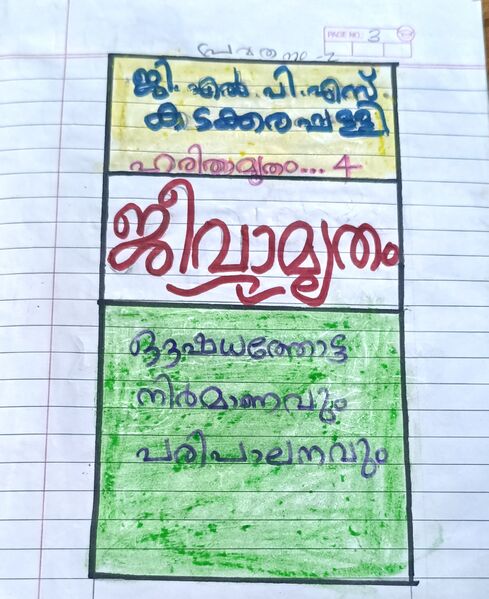 PAGE NO. 3
ജി. എൽ. പി. എസ്
കടക്കരപ്പള്ളി
ഹരിതാമൃതം... 4
ജീവാമൃതം
ഔഷധത്തോട്ട
നിർമാണവും
പരിപാലനവും